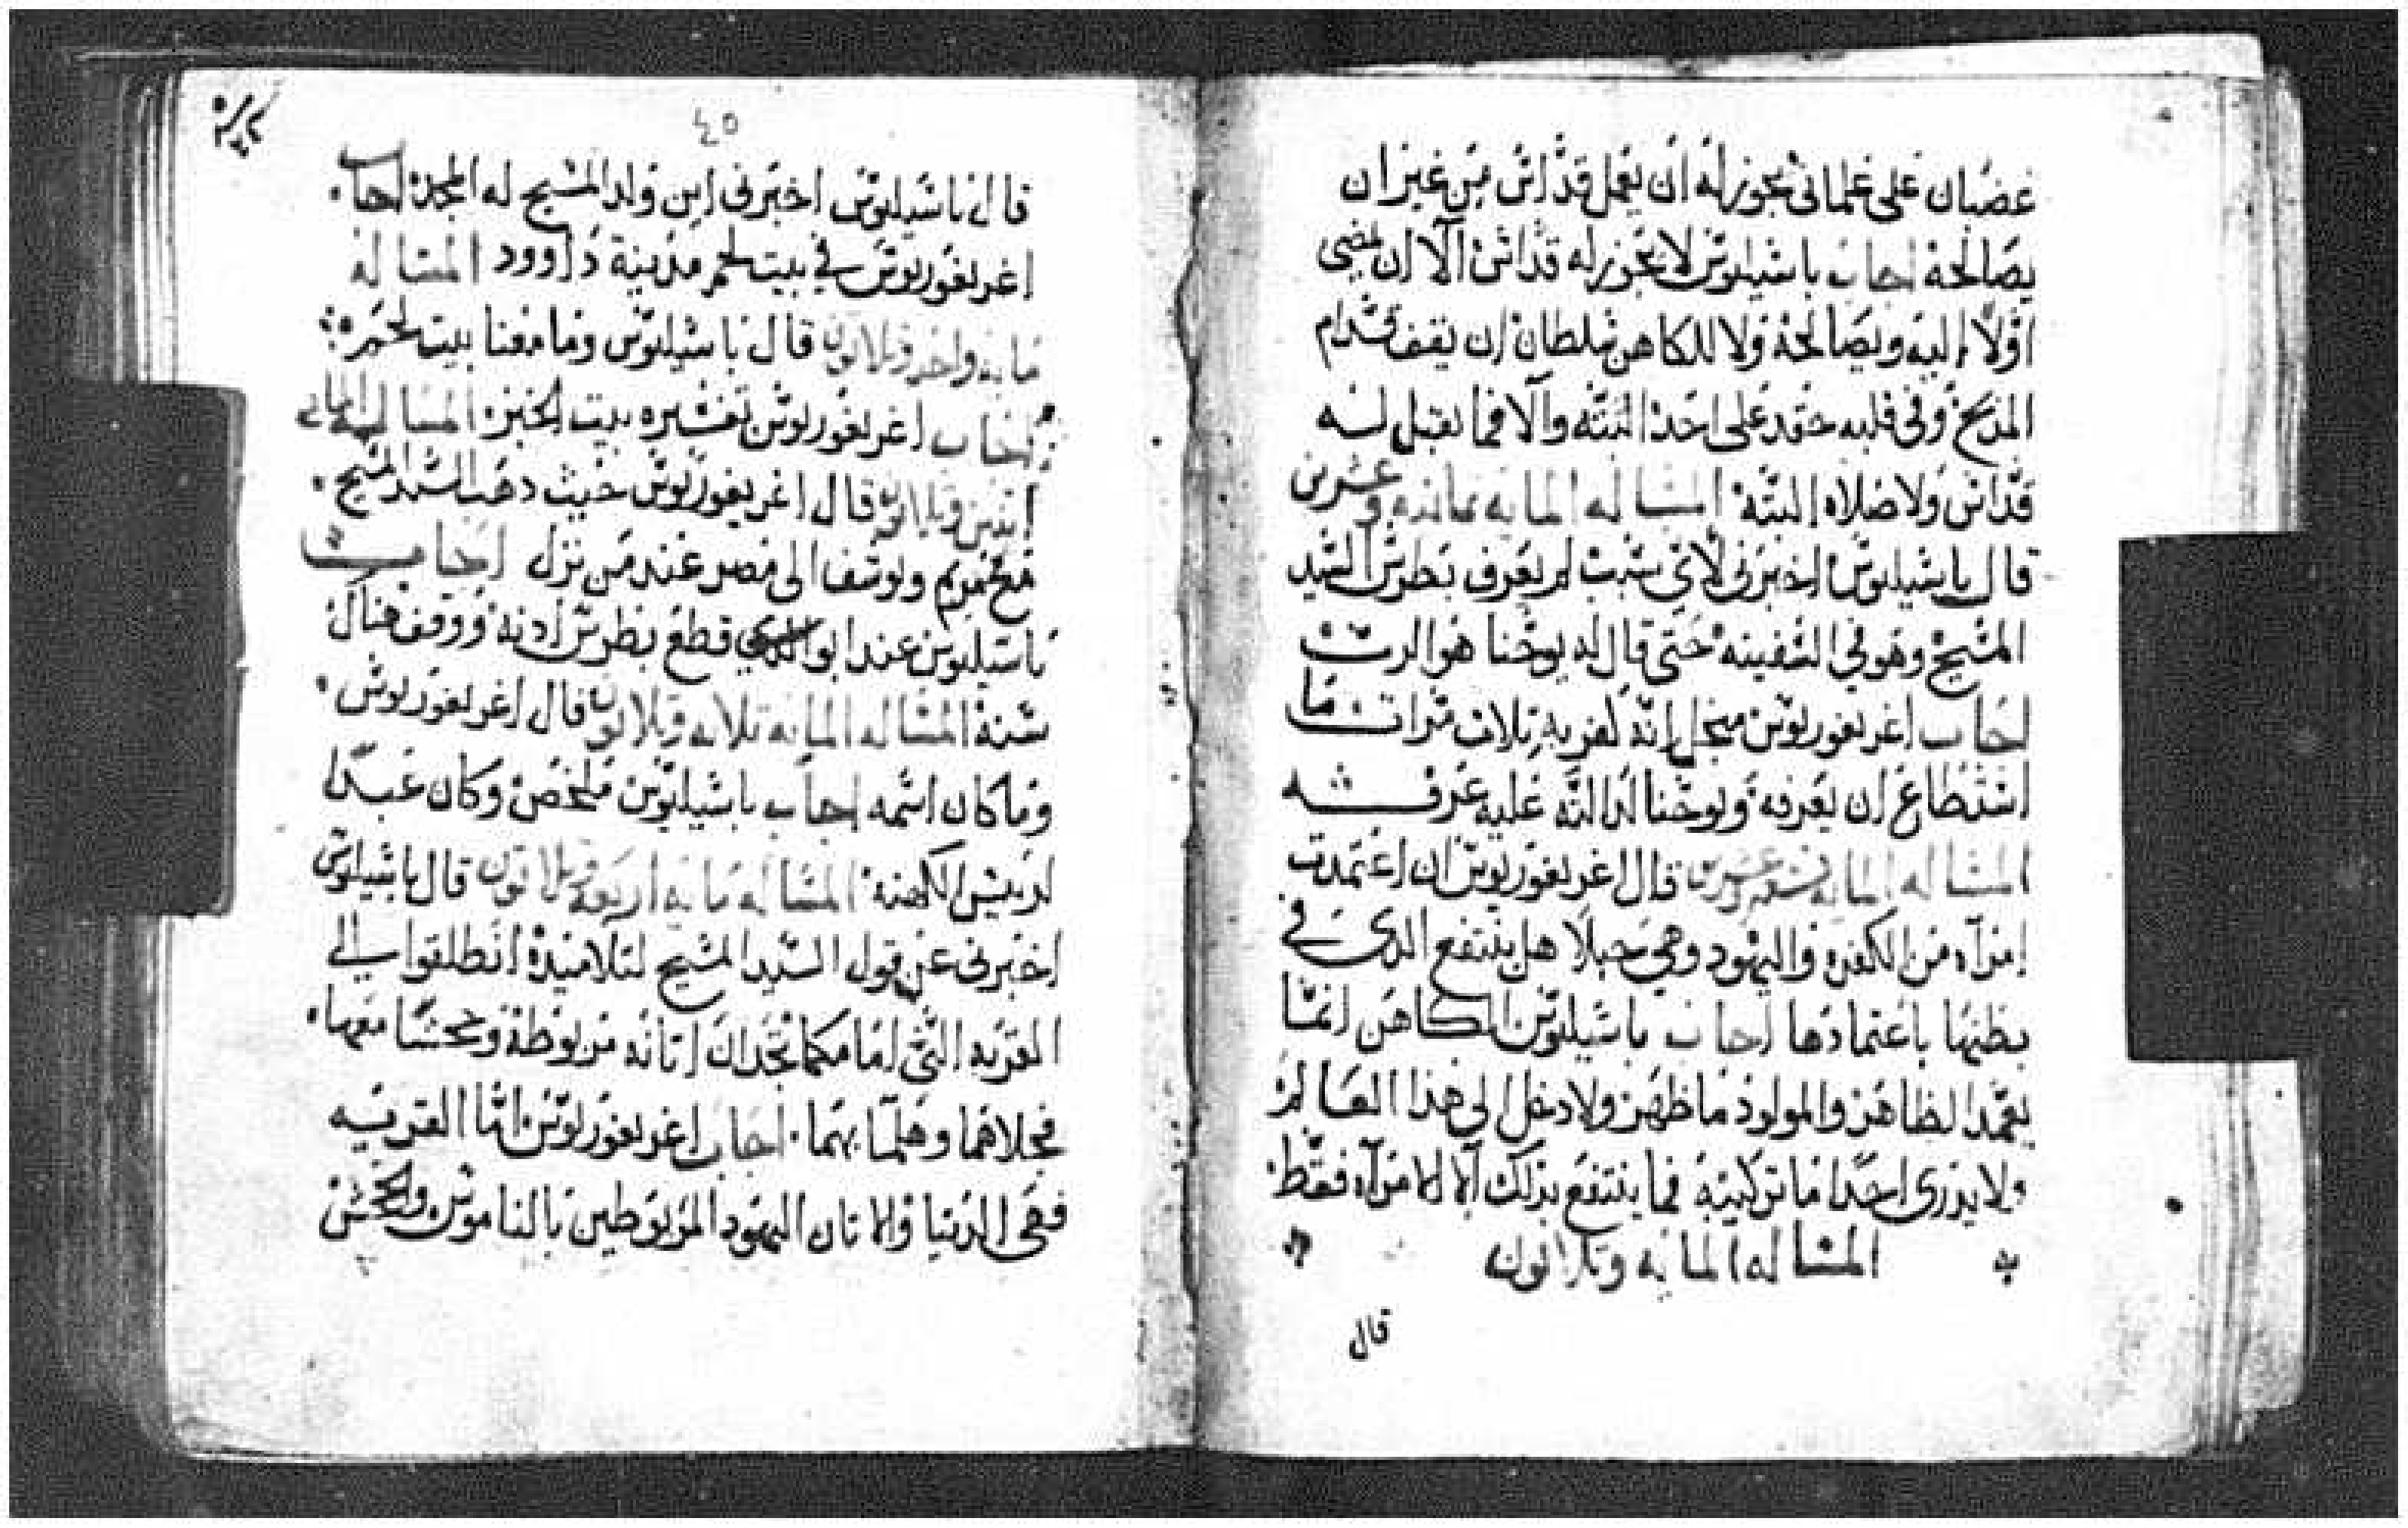 غضبان على علمانى يجوز له ان يعمل قداس من غير ان
يصالحه اجاب باسيليوس لا يجوز له قداس الا ان يمضى
اولا اليه ويصالحه ولا للكاهن سلطان ان يقف قدام
المذبح وفى قلبه حقد على احد البته والا فما يقبل له
قداس ولا صلاه البته المساله المايه تمانيه وعشرين
قال باسيليوس اخبرنى لاى سبب لم يعرف بطرس السيد
المسيح وهو فى السفينه حتى قال له يوحنا هو الرب
اجاب اغريغوريوس من اجل انه كفر به تلات مرات ما
استطاع ان يعرفه ويوحنا لداالته عليه عرفه
المساله المايه تسعه وعشرين قال اغريغوريوس ان اعتمدت
امراه من الكفره واليهود وهى حبلا هل ينتفع الدى فى
بطنها باعتمادها اجاب باسيليوس الكاهن انما
يعمد الظاهر والمولود ما ظهر ولا دخل الى هذا العالم
ولا يدرى احدا ما تركيبه فما ينتفع بذلك الا الامراه فقط
المساله المايه وتلاتون
قال
٤٥
قال باسيليوس اخبرنى اين ولد المسيح له المجد اجاب
اغريغوريوس فى بيت لحم مدينة داوود المساله
مايه واحد وتلاتون قال باسيليوس وما معنا بيت لحم
اجاب اغريغوريوس تفسيره بيت الخبز المساله المايه
اتنين وتلاتون قال اغريغوريوس حيث دهب السيد المسيح
مع مريم ويوسف الى مصر عند من نزل اجاب
باسيليوس عند ابو الدى قطع بطرس ادنه ووقف هناك
سنة المساله المايه تلاته وتلاتون قال اغريغوريوس
وما كان اسمه اجاب باسيليوس ملخص وكان عبدا
لرييس الكهنه المساله مايه اربعه وتلاتون قال باسيليوس
اخبرنى عن قول السيد المسيح لتلاميذه انطلقوا الى
القريه التى امامكما تجدان اتانه مربوطة وجحشا معها
فحلاهما وهلما بهما اجاب اغريغوريوس اما القريه
فهى الدنيا والاتان اليهود المربوطين بالناموس والجحش